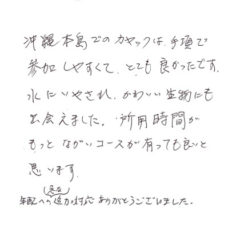 沖縄本島でのカヤックは、手頃で
参加しやすくて、とても良かったです。
水にいやされ、かわいい生物にも
出会えました。所用時間が
もっとながいコースが有っても良いと
思います。
年配への協力対応ありがとうございました。